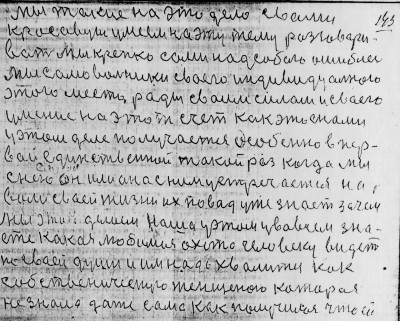 мы такие на это дело своими
красавуци умеем на эту тему разговари-
143
ват мы крепко сами над собою ошибает
мы самовольники своего индивидуалного
этого места ради своим силам и своего
умение на этот счет как это нами
у этом деле получается особенно в пер-
вай единственной такой раз когда мы
с нею он или она с ним устречается на
вали сваей жизни их повад уже знает зачем
мы этой делаем наша у этом увовсем зна-
ете какая любимая охото человеку видет
по сваей души и им надо хвалити как
собственическую женщеною которая
не знала даже сама как получилая что ей